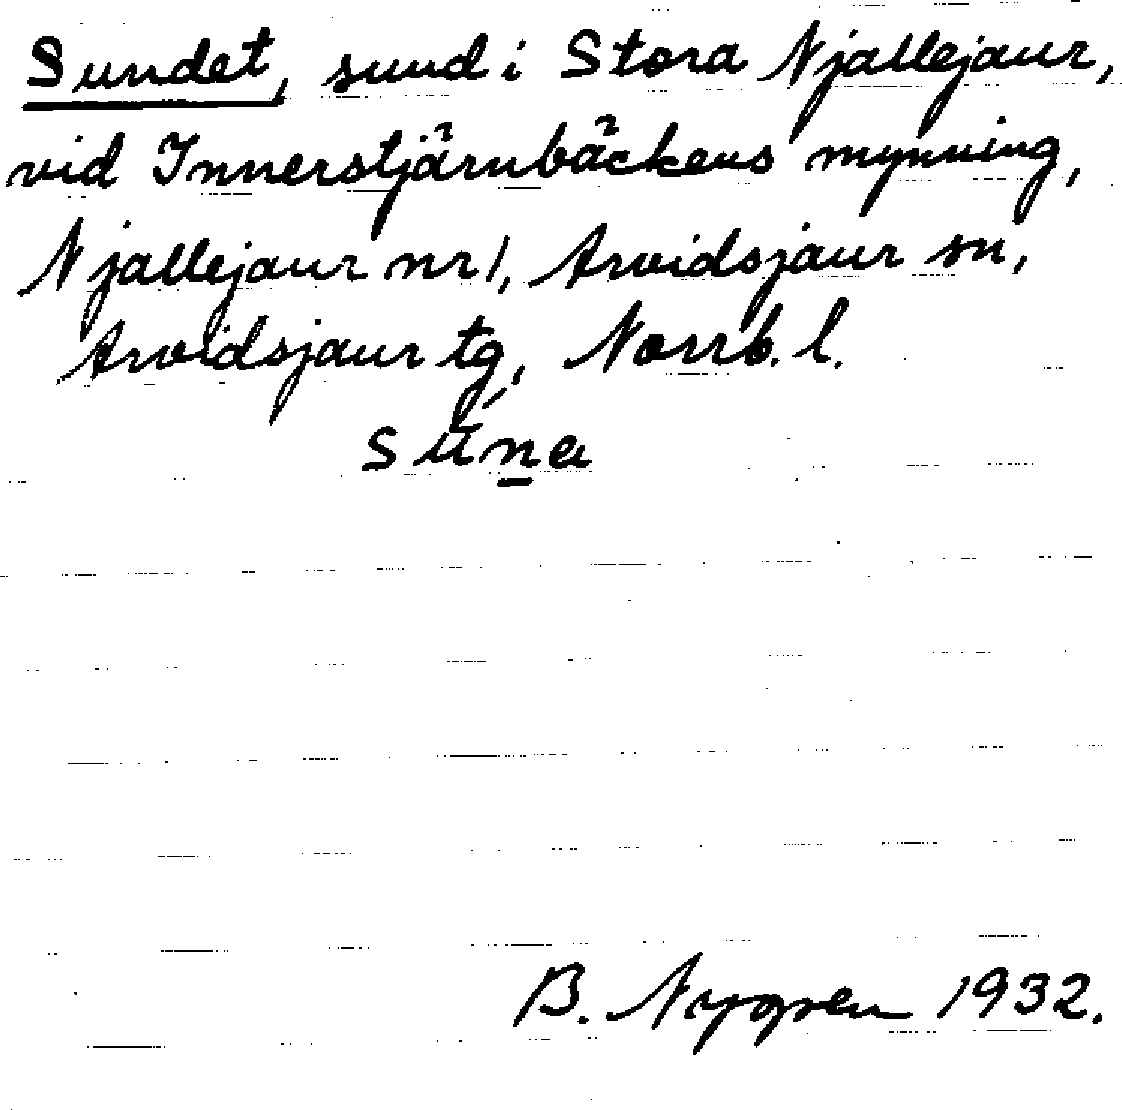 Sundet, sund i Stora Njallejaur,
vid Innerstjärnbäckens mynning,
Njallejaur nr 1, Arvidsjaur sn,
Arvidsjaur tg, Norrb. l.
B. Nygren 1932.